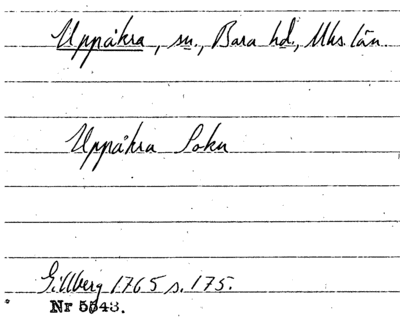 Uppåkra, sn., Bara hd., Mhs. län.
Uppåkra Sokn
Gillberg 1765 s. 175.
Nr 5543.